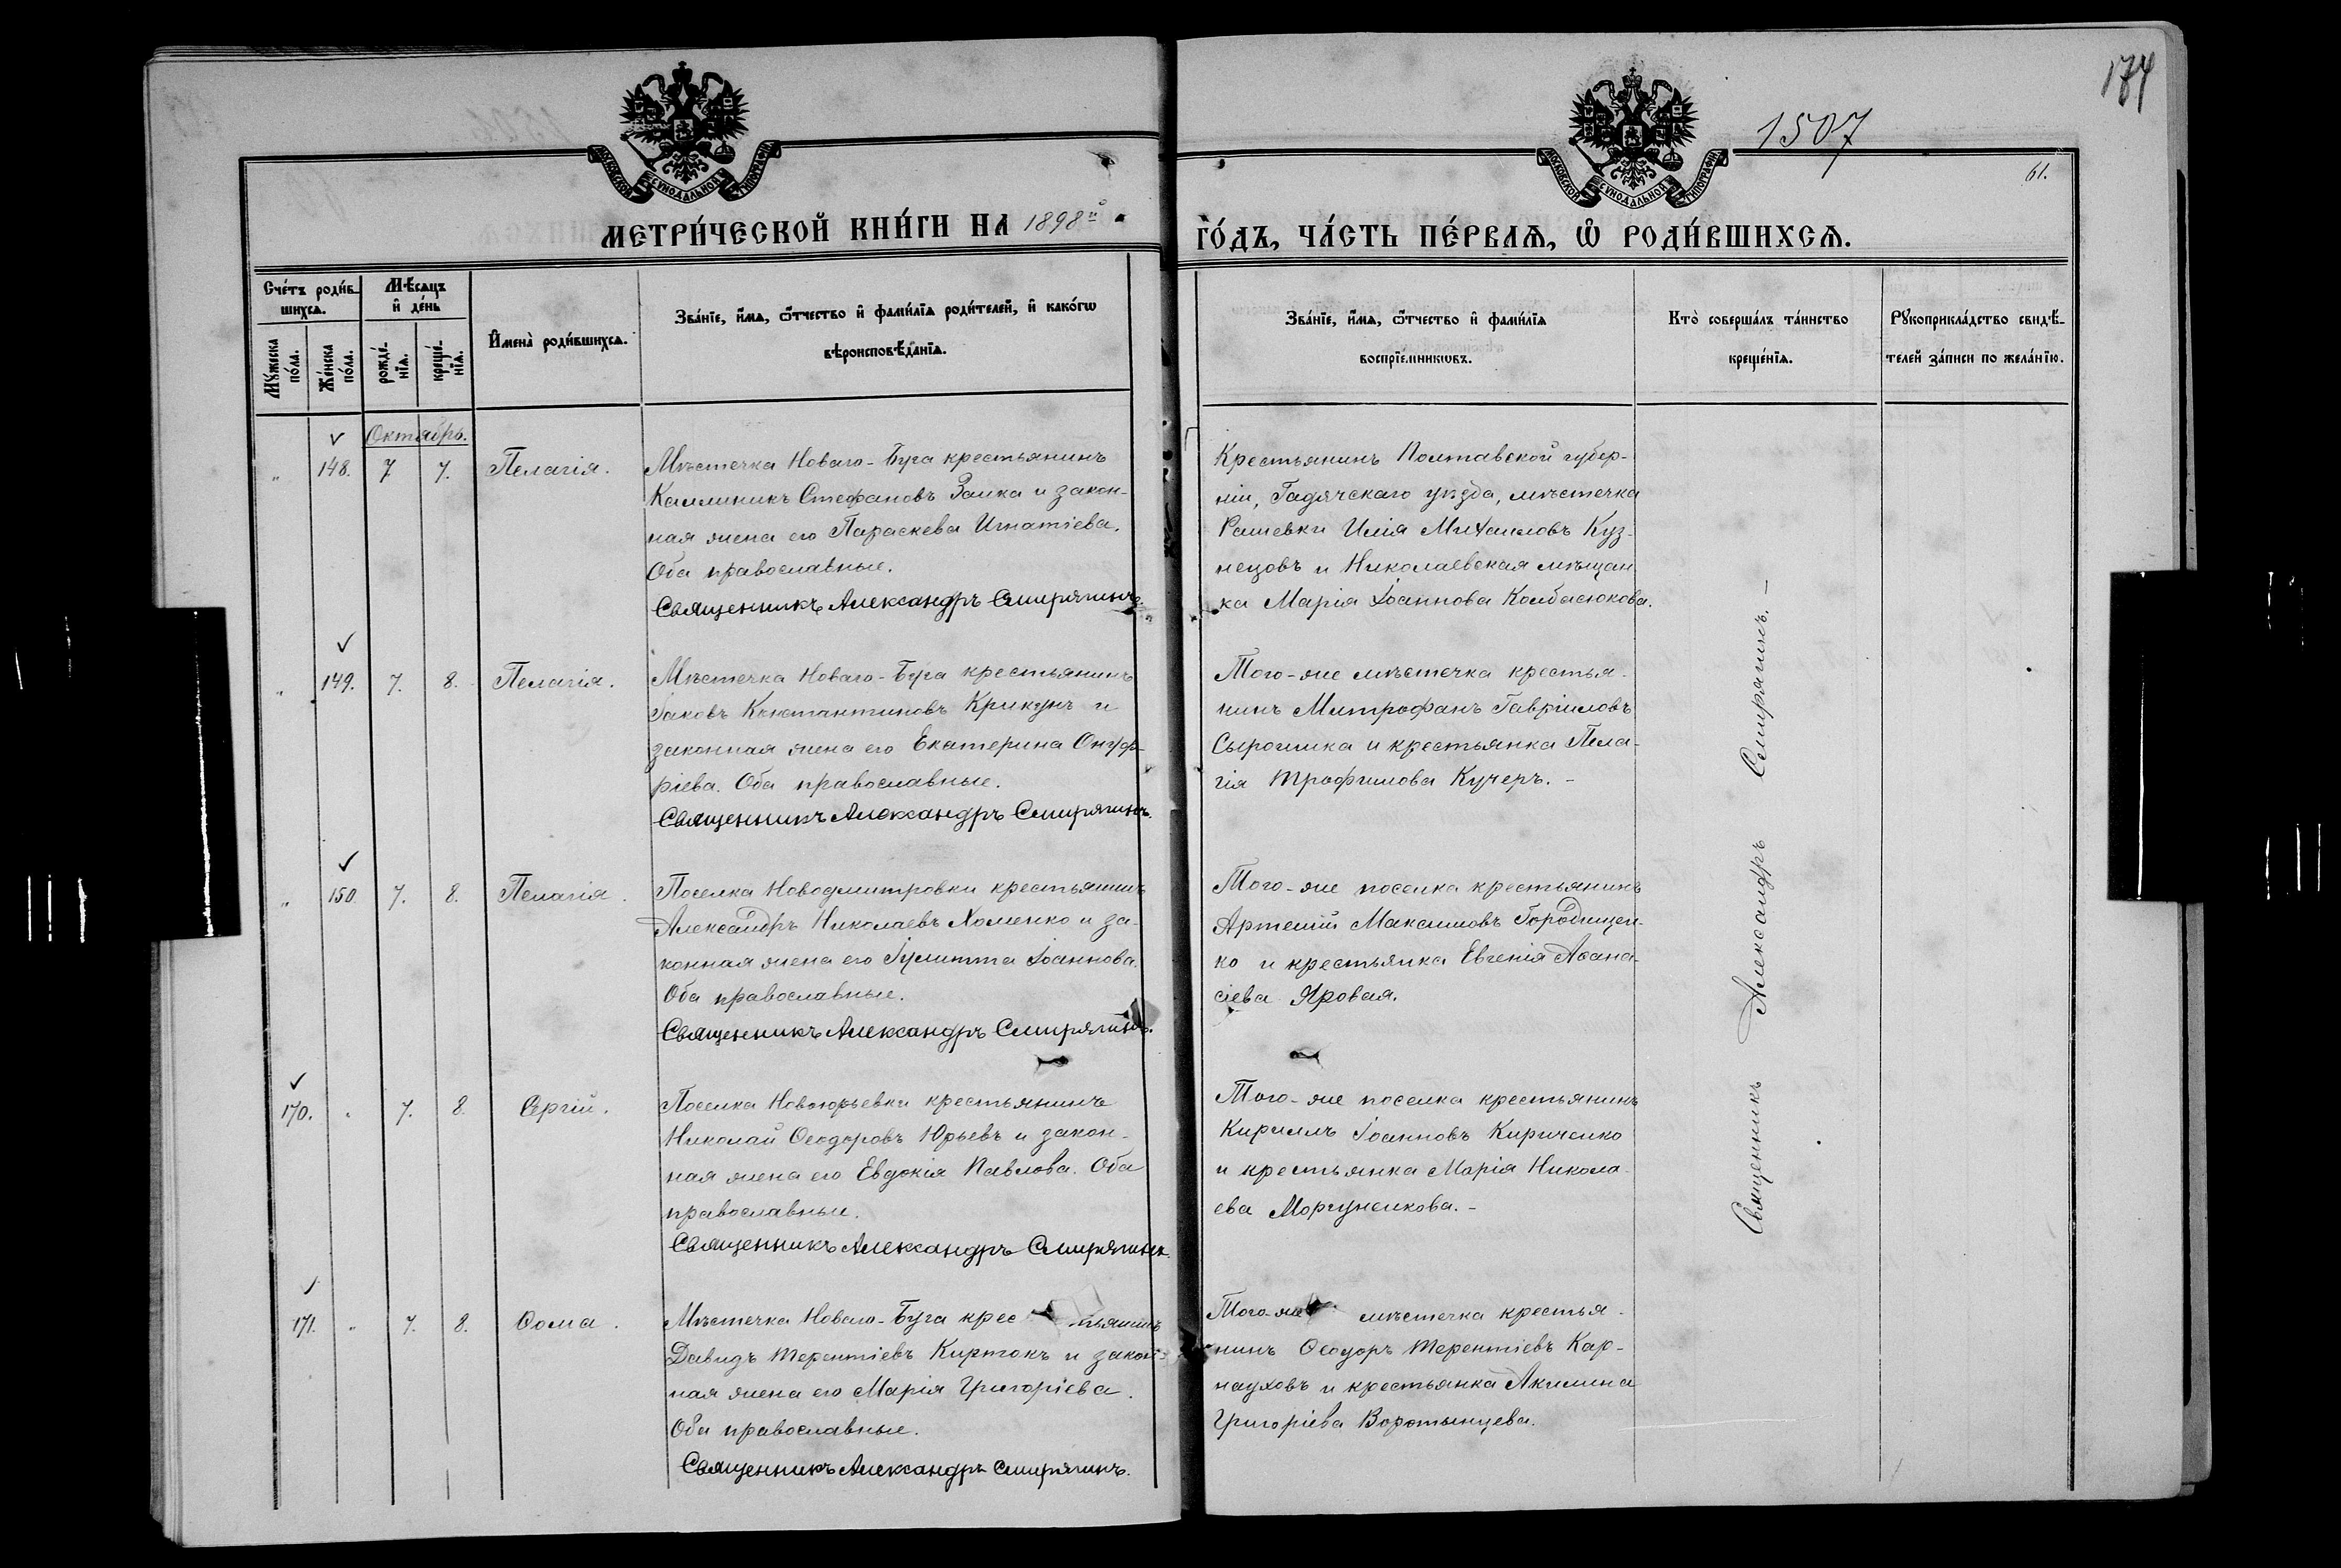 174
1507
61.
МОСКОВСКОЙ СѴНОДАЛЬНОЙ ТИПОГРАФІИ
МОСКОВСКОЙ СѴНОДАЛЬНОЙ ТИПОГРАФІИ
МЕТРИ́ЧЕСКОЙ КНИ́ГИ НА 1898й
ГО́ДЪ, ЧА́СТЬ ПЕ́РВАѦ, Ѡ҆ РОДИ́ВШИХСѦ.
Сче́тъ роди́в-
шихсѧ.
Мꙋ́жеска по́ла.
Же́нска по́ла.
Мѣ́сѧцъ
и҆ де́нь
рожде́-
нїѧ.
креще́-
нїѧ.
И҆мена̀ роди́вшихсѧ.
Зва́нїе, и҆́мѧ, ѻ҆́тчество и҆ фами́лїѧ роди́телей, и҆ како́гѡ
вѣроисповѣ́данїѧ.
Зва́нїе, и҆́мѧ, ѻ҆́тчество и҆ фами́лїѧ
воспрїе́мникѡвъ.
Кто̀ соверша́лъ та́инство
креще́нїѧ.
Рꙋкоприкла́дство свидѣ́-
телей за́писи по жела́нїю.
Октябрь.
„ 148. 7 7. Пелагія.
Мѣстечка Новаго-Буга крестьянинъ
Каллиникъ Стефановъ Заика и закон-
ная жена его Параскева Игнатіева.
Оба православные.
Священникъ Александръ Смирягинъ.
Крестьянинъ Полтавской губер-
ніи, Гадячскаго уѣзда, мѣстечка
Рашевки Илія Михаиловъ Куз-
нецовъ и Николаевская мѣщан
ка Марія Іоаннова Колбасюкова.
„ 149. 7. 8. Пелагія.
Мѣстечка Новаго-Буга крестьянинъ
Іаковъ Константиновъ Крикунъ и
законная жена его Екатерина Онуф-
ріева. Оба православные.
Священникъ Александръ Смирягинъ.
Того-же мѣстечка крестья-
нинъ Митрофанъ Гавріиловъ
Сыромика и крестьянка Пела-
гія Трофимова Кучеръ. -
„ 150 7. 8. Пелагія.
Поселка Новодмитровки крестьянинъ
Александръ Николаевъ Хоменко и за-
конная жена его Іулитта Іоаннова.
Оба православные.
Священникъ Александръ Смирягинъ.
Того-же поселка крестьянинъ
Артемій Максимовъ Городищен-
ко и крестьянка Евгенія Аѳана-
сіева Яровая.
170. „ 7. 8. Сергій.
Поселка Новоюрьевки крестьянинъ
Николай Ѳеодоровъ Юрьевъ и закон-
ная жена его Евдокія Павлова. Оба
православные.
Священникъ Александръ Смирягинъ.
Того-же поселка крестьянинъ
Кириллъ Іоанновъ Кириченко
и крестьянка Марія Никола-
ева Моргуненкова. -
171. „ 7. 8. Ѳома.
Мѣстечка Новаго-Буга крес тьянинъ
Давидъ Терентіевъ Киртокъ и закон-
ная жена его Марія Григоріева.
Оба православные.
Священникъ Александръ Смирягинъ.
Того-же мѣстечка крестья-
нинъ Ѳеодоръ Терентіевъ Кар-
науховъ и крестьянка Акилина
Григоріева Воротынцева.
Священникъ Александръ Смирягинъ. -